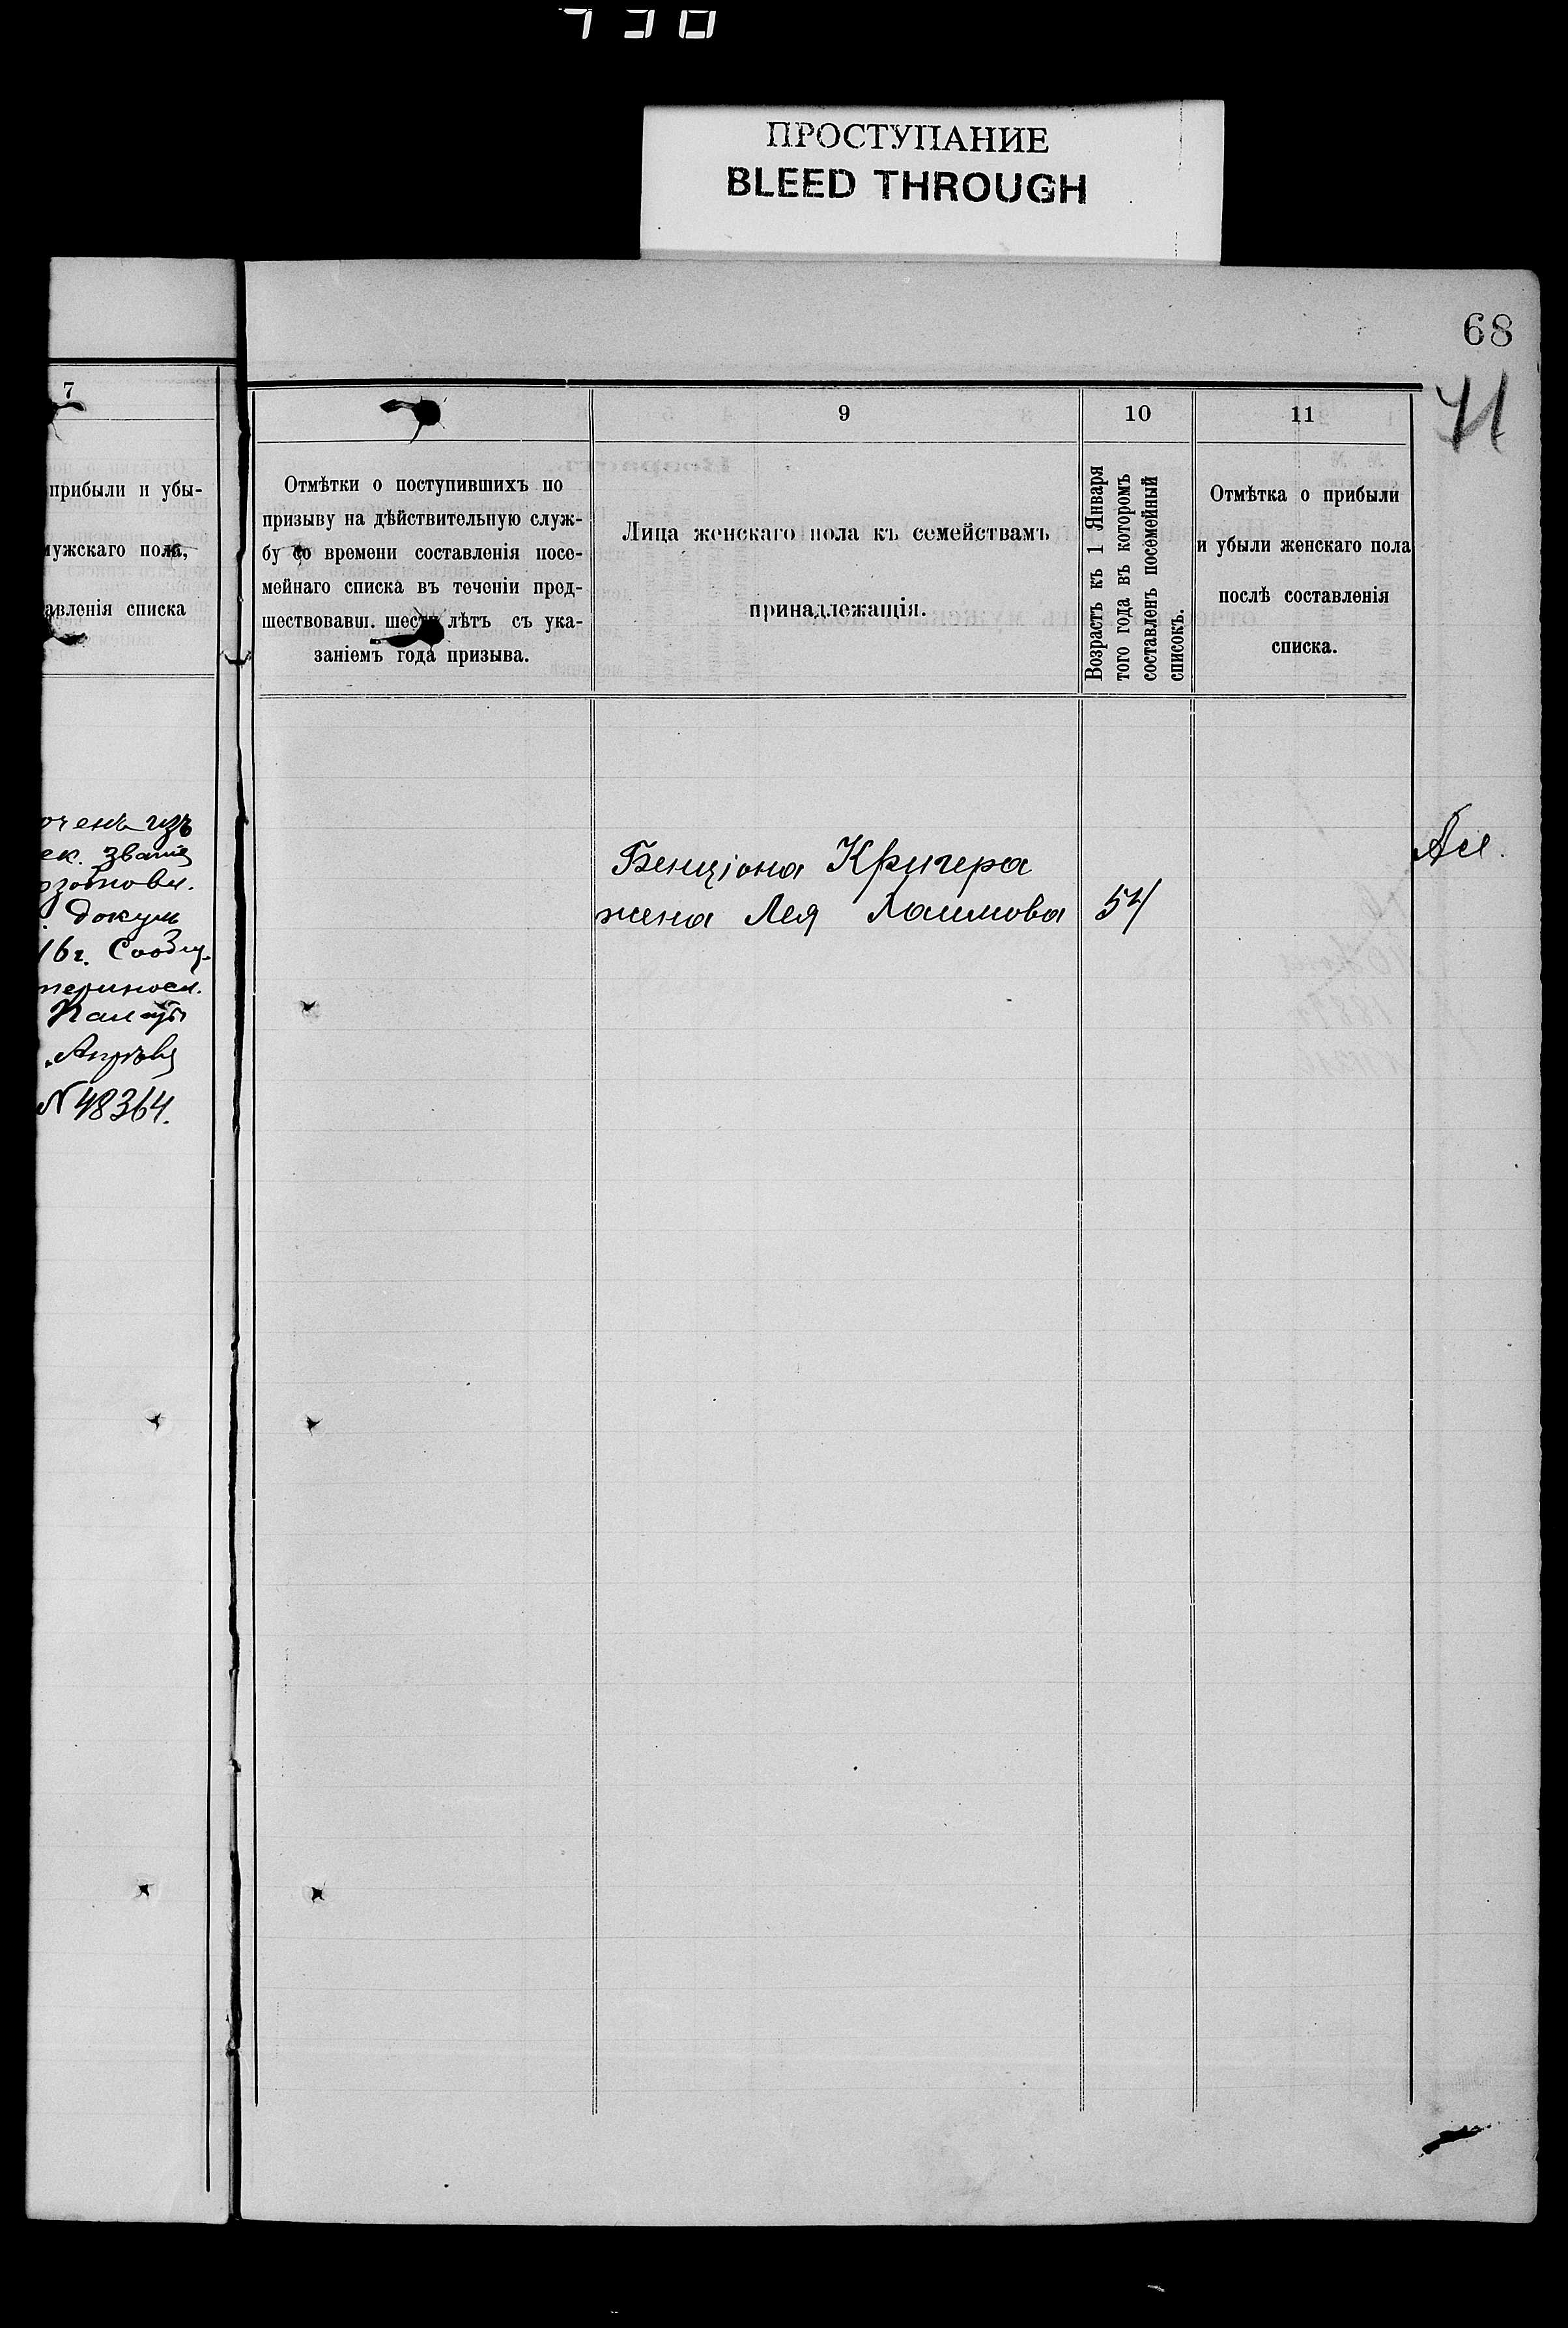 ПРОСТУПАНИЕ
BLEED THROUGH
68
71
7
прибыли и убы-
мужскаго пола,
авленія списка
оченъ изъ
ек. званія
докум
16г. Сообщ.
Палаты
№ 48364.
Отмѣтки о поступившихъ по
призыву на дѣйствительную служ-
бу со времени составленія посе-
мейнаго списка въ теченіи пред-
шествовавш. шести лѣтъ съ ука-
заніемъ года призыва.
9
Лица женскаго пола къ семействамъ
принадлежащія.
10
Возрастъ къ 1 Января
того года въ которомъ
составленъ посемейный
списокъ.
11
Отмѣтка о прибыли
и убыли женскаго пола
послѣ составленія
списка.
Бенціона Кригера
жена Лея Хаимова 54